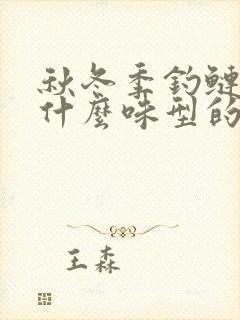 秋冬季钓鲢
什麼味型的
王森